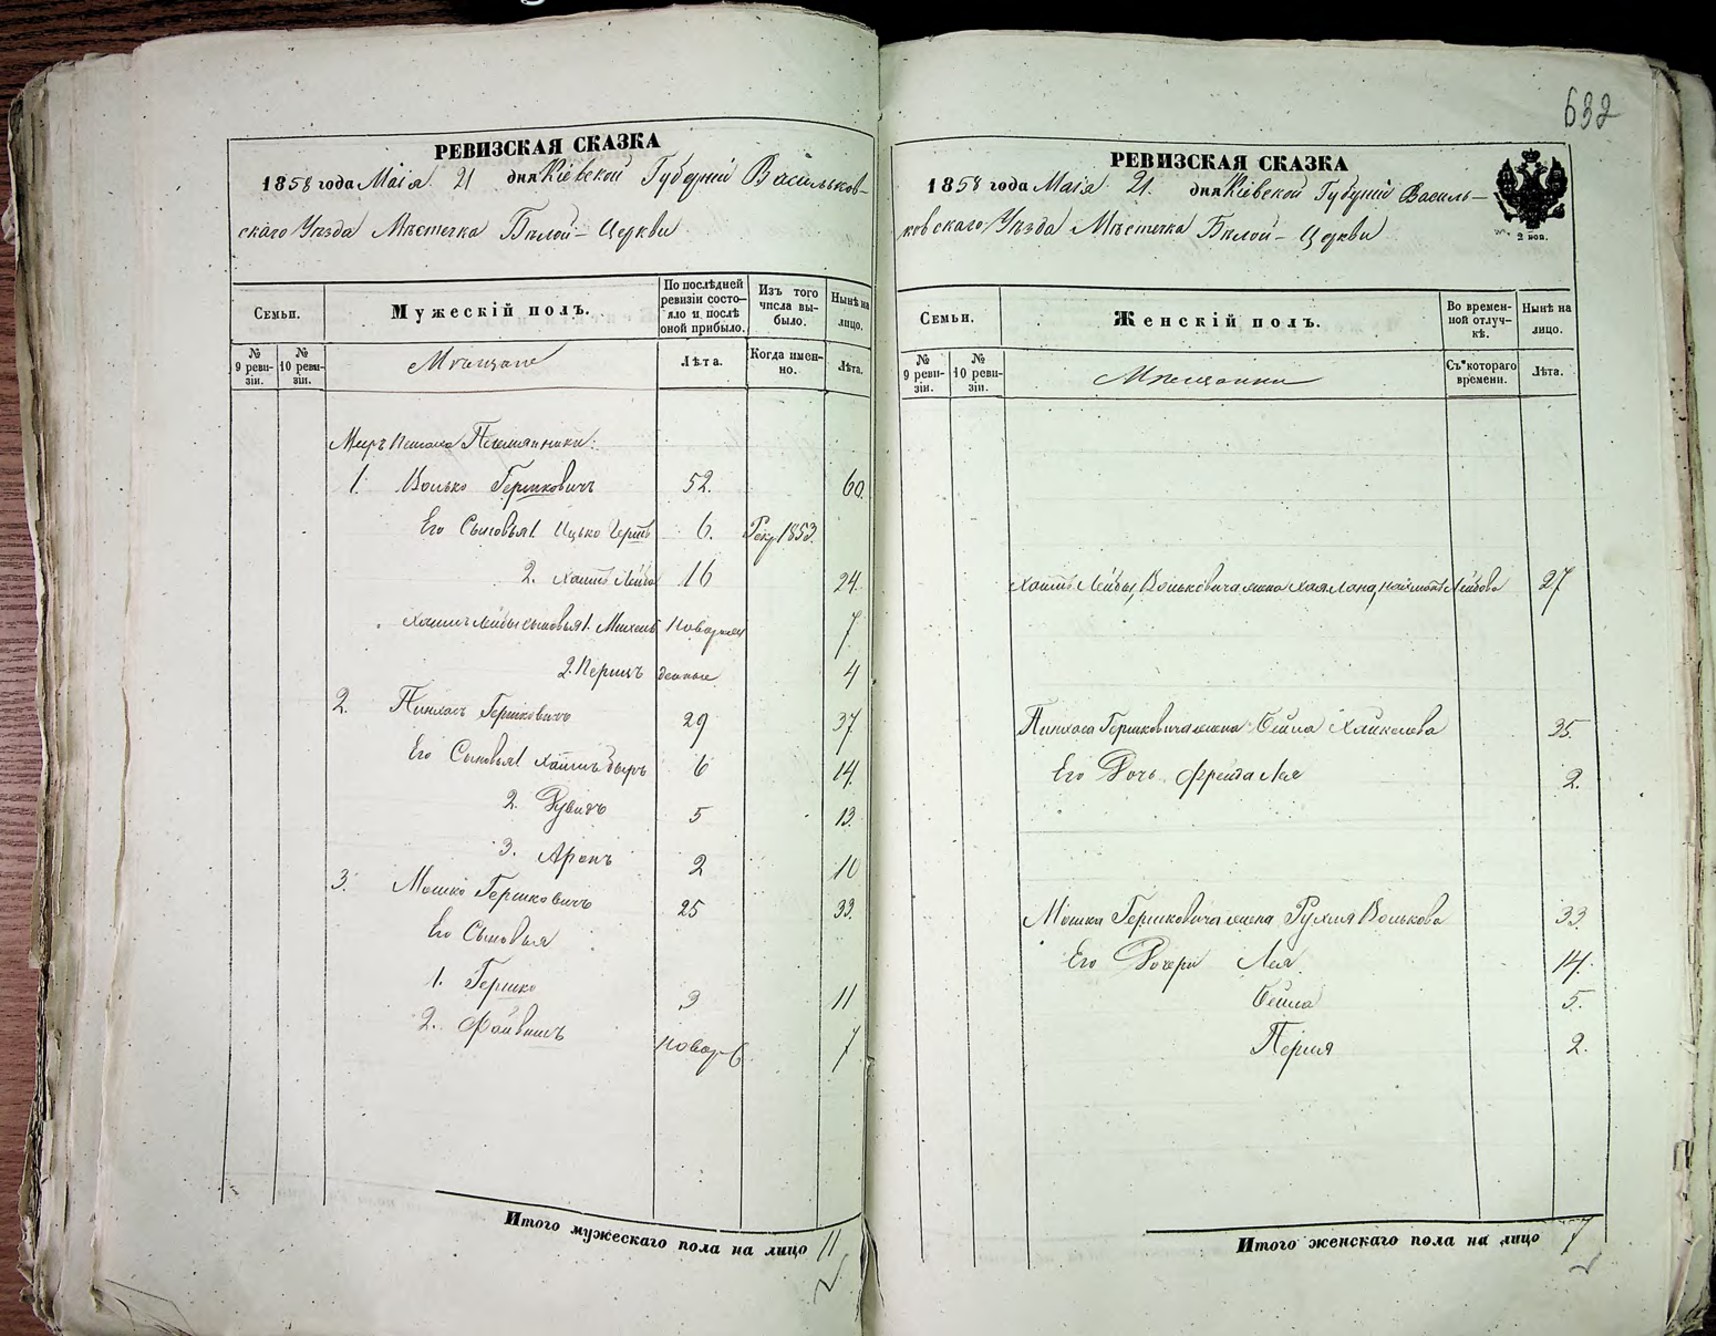 РЕВИЗСКАЯ СКАЗКА
1858 года Маія 21 дня Кіевской Губерніи Васильков-
скаго Уѣзда Мѣстечка Бѣлой-Церкви
Семьи.
Мужескій полъ.
По послѣдней ревизіи состояло и послѣ оной прибыло.
Изъ того числа выбыло.
Нынѣ на лицо.
№ 9 ревизіи.
№ 10 ревизіи.
Мѣщане
Лѣта.
Когда именно.
Лѣта.
Племянники:
1. Волько Гершковичъ 52. 60.
Его Сыновья 1. Ицько Гершъ 6. Рекр. 1853.
2. Хаимъ Лейба 16 24.
Хаимъ Лейбы сыновья 1. Новорож 7
2. денные 4
2. Пинхасъ Гершковичъ 29 37
Его Сыновья 1 Хаимъ 6 14.
2. Рувинъ 5 13.
3. Аронъ 2 10
3. Мошко Гершковичъ 25 33.
Его Сыновья
1. Гершко 3 11
2. Файвишъ новор 7
Итого мужескаго пола на лицо 11
632
РЕВИЗСКАЯ СКАЗКА
1858 года Маія 21. дня Кіевской Губерніи Василь-
ковскаго Уѣзда Мѣстечка Бѣлой-Церкви
2 коп.
Семьи.
Женскій полъ.
Во временной отлучкѣ.
Нынѣ на лицо.
№ 9 ревизіи.
№ 10 ревизіи.
Мѣщанки
Съ котораго времени.
Лѣта.
Хаимъ Лейбы Вольковича жена 27
Пинхаса Гершковича жена Бейла Хаикелова 35.
Его Дочь Фрейда Лея 2.
Мошки Гершковича жена Рухля Волькова 33
Его Дочери Лея. 14.
Бейла 5.
Перля 2.
Итого женскаго пола на лицо 7